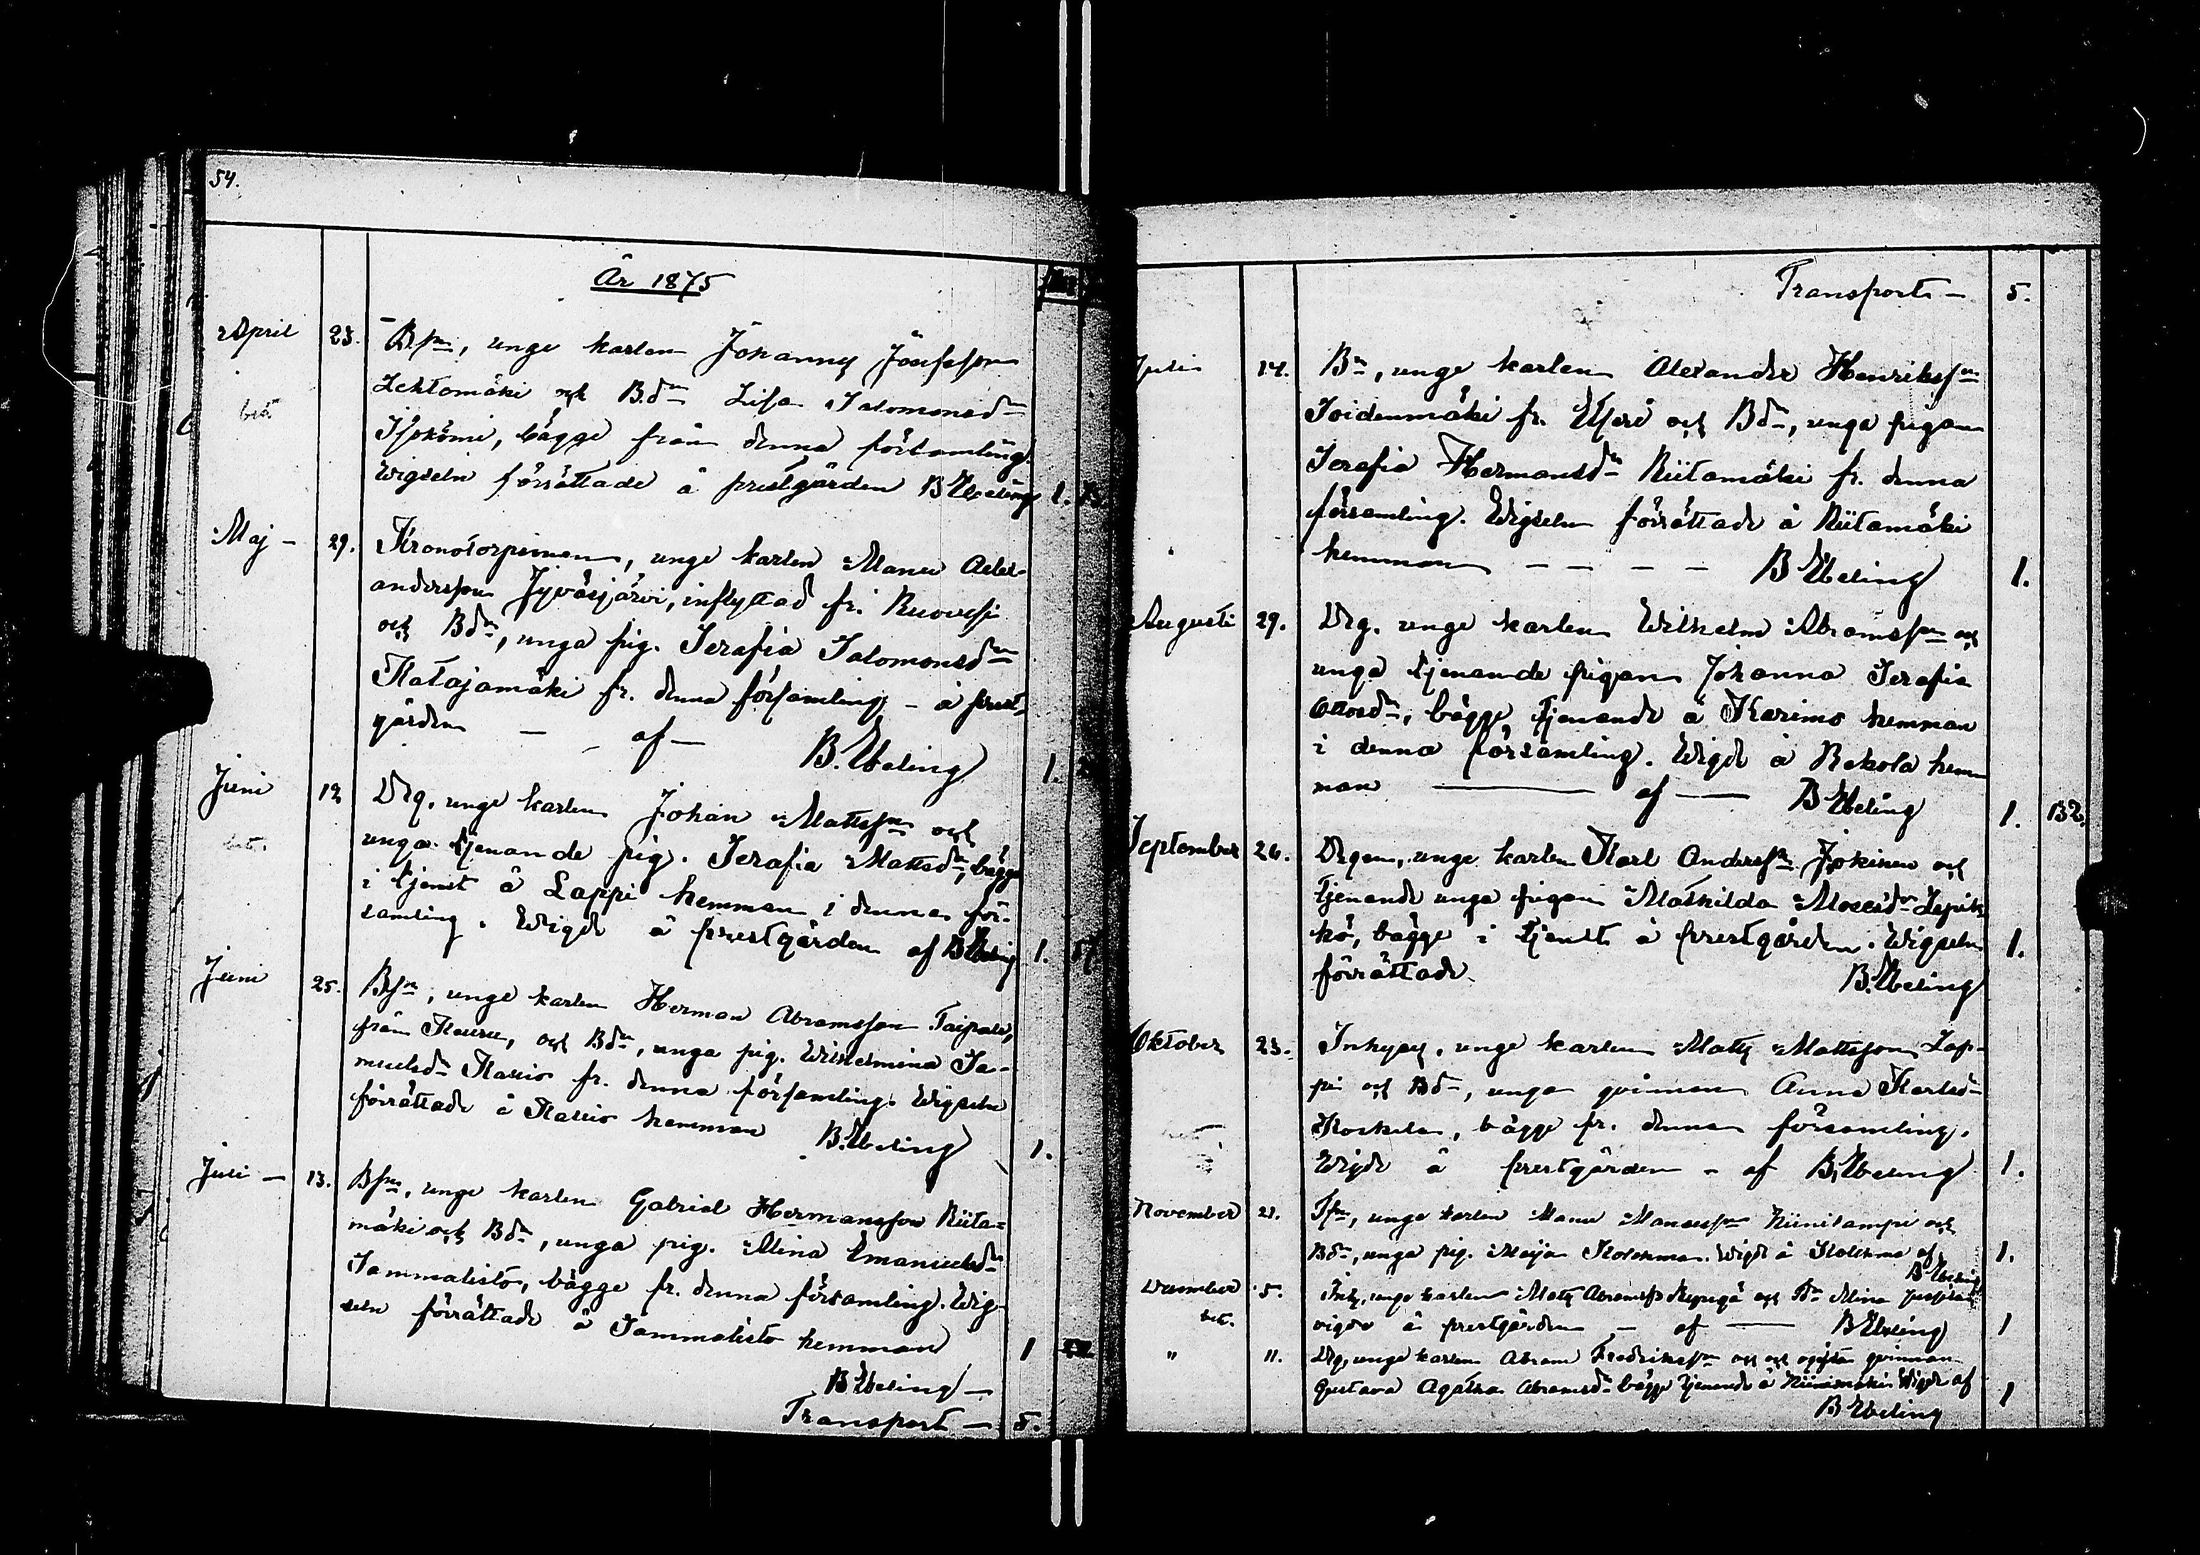 54.
År 1875
April 23. Bsn, unge karlen Johannes Josefsson
bet Lehtomäki och Bdn Lisa Salomonsdr
bägge från denna församling.
Wigseln förrättade å prestgården B Ebeling 1.
Maj - 29. Kronotorparen, unge karlen Manu Alex-
andersson Jyväsjärvi, inflyttad fr. Ruovesi
och Bdn, unga pig. Serafia Salomonsdn
Katajamäki fr. denna församling - å prest-
gården - af - B. Ebeling 1.
Juni 12 Drg, unge karlen Johan Mattssn och
bet. unga tjenande pig. Serafia Mattsdn, bägge
i tjenst å Lappi hemman i denna för-
samling. Wigde å prestgården af B Ebeling 1.
Juni 25. Bsn, unge karlen Herman Abramsson Taipale,
från Keuru, och Bdn, unga pig. Wilhelmina Sa-
muelsdn fr. denna församling. Wigseln
förrättade å hemman B. Ebeling 1.
Juli - 13. Bsn, unge karlen Gabriel Hermansson Riita-
mäki och Bdn, unga pig. Mina Emanuelsdn
Sammalisto, bägge fr. denna församling. Wig-
seln förrättade å Sammalisto hemman 1
B Ebeling -
Transport - 5.
Transport - 5.
Juli 14. Bn, unge karlen Alexander Henrikssn
Soidenmäki fr. och Bdn, unga pigan
Serafia Hermansdn Riitamäki fr. denna
församling. Wigseln förrättade å Riitamäki
hemman - - - - B Ebeling 1.
Augusti 29. Drg. unge karlen Wilhelm Abramssn och
unga tjenande pigan Johanna Serafia
Ottosdn, bägge tjenande å Karimo hemman
i denna församling. Wigde å Rekola hem-
man - af - B Ebeling 1. 132.
September 26. Drgen, unge karlen Karl Anderssn Jokinen och
tjenande unga pigan Mathilda Mosesdn Lepik-
kö, bägge i tjenst å prestgården. Wigseln 1.
förrättade B. Ebeling
Oktober 23. Inhyses, unge karlen Matts Mattsson Lap-
pi och Bdn, unga qvinnan Anna Karlsdn
Koskela, bägge fr. denna församling.
Wigde å prestgården - af B. Ebeling 1.
November 21. unge karlen Manu Manassn Kiinilampi och
Bdn, unga pig. Maija Kolehma. Wigde å Kolehma af 1.
B Ebeling
December 5. Inh, unge karlen Matts Abramss och Mina
bet. wigde å prestgården - af - B Ebeling 1
" 11. Drg, unge karlen Abram Fredrikssn och ogifta qvinnan
Gustava Agatha Abramsdn bägge tjenande å Wigde af 1
B Ebeling